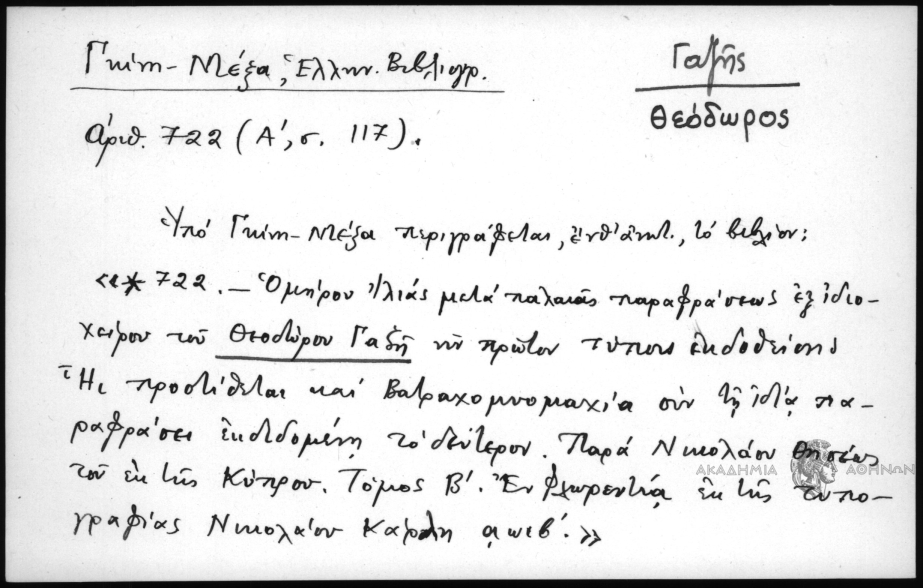 Γκίνη - Μέξα, Ἑλλην. Βιβλιογρ.
Γαζῆς
Θεόδωρος
ἀριθ. 722 (Α', σ. 117).
Ὑπό Γκίνη - Μέξα περιγράφεται, ἐνθ' ἀνωτ., τό βιβλίον:
«* 722. — Ὁμήρου Ἰλιάς μετά παλαιᾶς παραφράσεως ἐξ ἰδιο-
χείρου τοῦ Θεοδώρου Γαζῆ νῦν πρῶτον τύποις ἐκδοθείσης
Ἧι προστίθεται καί Βατραχομυομαχία σύν τῇ ἰδίᾳ πα-
ραφράσει ἐκδιδομένη τό δεύτερον. Παρά Νικολάου Θησέως
τοῦ ἐκ τῆς Κύπρου. Τόμος Β'. Ἐν Φλωρεντίᾳ ἐκ τῆς τυπο-
γραφίας Νικολαίου Κάρλη ͵αωιβ'.»
ΑΚΑΔΗΜΙΑ ΑΘΗΝΩΝ